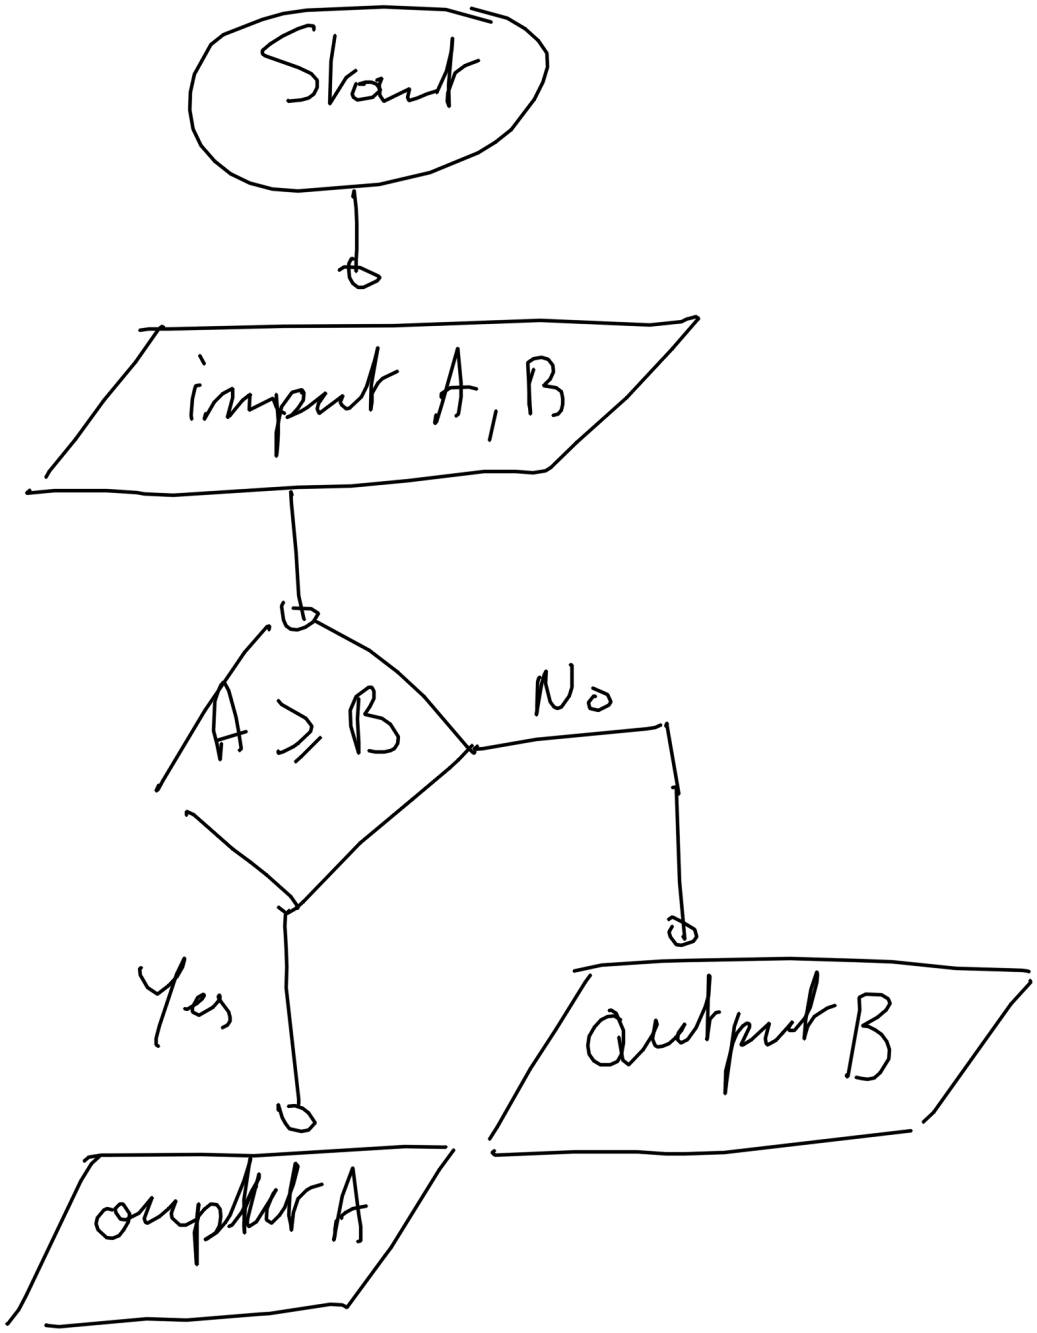 Start
input A, B
A ⩾ B
No
Yes
Output B
A